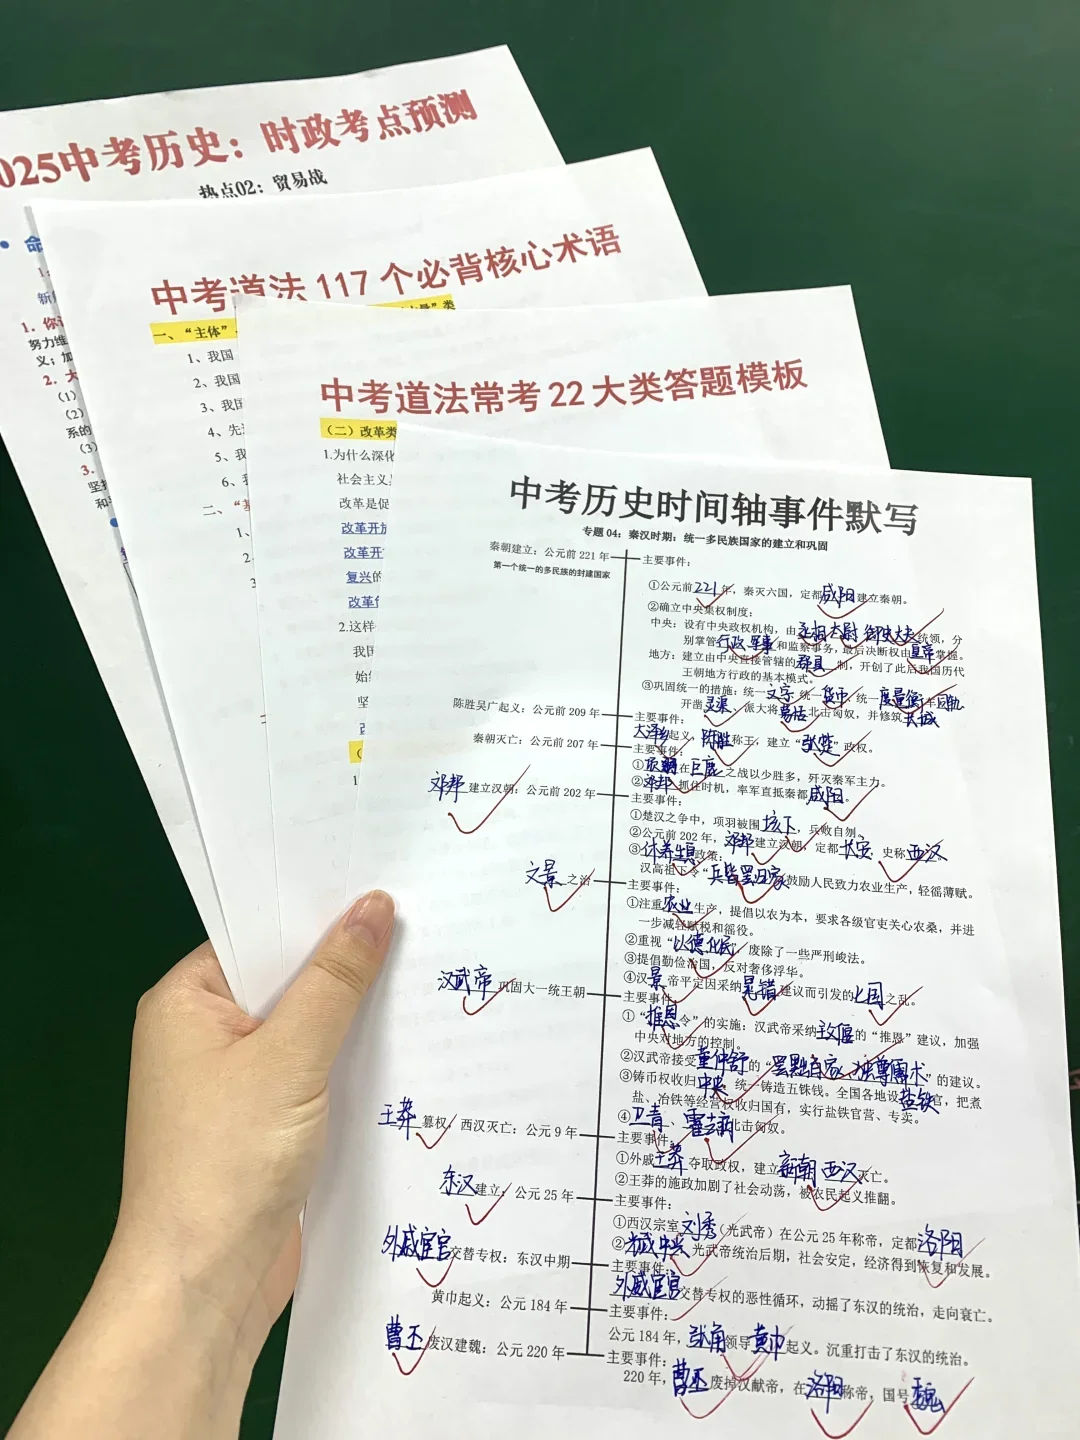 025中考历史：时政考点预测
热点02：贸易战
命
新
1. 你
努力维
义；加
2. 大
(1)
(2)
系的
(3)
3.
坚
和
中考道法 117 个必背核心术语
一、“主体”
类
1、我国
2、我国
3、我国
4、先
5、我
6、我
二、“基
1、
2.
3.
中考道法常考 22 大类答题模板
（二）改革类
1.为什么深化
社会主义
改革是促
改革开放
改革开
复兴的
改革
2.这样
我国
始终
坚
改
1
中考历史时间轴事件默写
专题 04：秦汉时期：统一多民族国家的建立和巩固
秦朝建立：公元前 221 年
第一个统一的多民族的封建国家
主要事件：
①公元前221年，秦灭六国，定都咸阳建立秦朝。
②确立中央集权制度：
中央：设有中央政权机构，由丞相 太尉 御史大夫统领，分
别掌管行政、军事和监察事务，最后决断权由皇帝掌握。
地方：建立由中央直接管辖的郡县制，开创了此后我国历代
王朝地方行政的基本模式。
③巩固统一的措施：统一文字、统一货币、统一度量衡、车同轨
开凿灵渠、派大将蒙恬北击匈奴，并修筑长城
陈胜吴广起义：公元前 209 年
主要事件：
大泽乡起义，陈胜称王，建立“张楚”政权。
秦朝灭亡：公元前 207 年
主要事件：
①项羽在巨鹿之战以少胜多，歼灭秦军主力。
②邓邦抓住时机，率军直抵秦都咸阳。
邓邦建立汉朝：公元前 202 年
主要事件：
①楚汉之争中，项羽被围垓下，兵败自刎。
②公元前 202 年，邓邦建立汉朝，定都长安，史称西汉
③休养生息政策：
汉高祖下令“兵皆罢归家”鼓励人民致力农业生产，轻徭薄赋。
文景之治
主要事件：
①注重农业生产，提倡以农为本，要求各级官吏关心农桑，并进
一步减轻赋税和徭役。
②重视“以德化民”，废除了一些严刑峻法。
③提倡勤俭治国，反对奢侈浮华。
④汉景帝平定因采纳晁错建议而引发的七国之乱。
汉武帝巩固大一统王朝
主要事件：
①“推恩令”的实施：汉武帝采纳主父偃的“推恩”建议，加强
中央对地方的控制。
②汉武帝接受董仲舒的“罢黜百家，独尊儒术”的建议。
③铸币权收归中央，统一铸造五铢钱。全国各地设盐铁官，把煮
盐、冶铁等经营权收归国有，实行盐铁官营、专卖。
④卫青、霍去病北击匈奴。
王莽篡权，西汉灭亡：公元 9 年
主要事件：
①外戚王莽夺取政权，建立新朝 西汉灭亡。
②王莽的施政加剧了社会动荡，被农民起义推翻。
东汉建立：公元 25 年
主要事件：
①西汉宗室刘秀（光武帝）在公元 25 年称帝，定都洛阳
②光武中兴：光武帝统治后期，社会安定，经济得到恢复和发展。
外戚宦官交替专权：东汉中期
主要事件：
外戚宦官交替专权的恶性循环，动摇了东汉的统治，走向衰亡。
黄巾起义：公元 184 年
主要事件：
公元 184 年，张角领导黄巾起义。沉重打击了东汉的统治。
曹丕废汉建魏：公元 220 年
主要事件：
220 年，曹丕废掉汉献帝，在洛阳称帝，国号魏